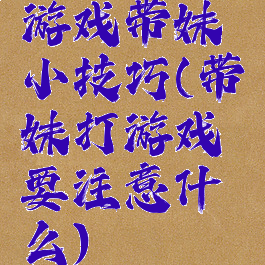 游戏带妹
小技巧(带
妹打游戏
要注意什
么)